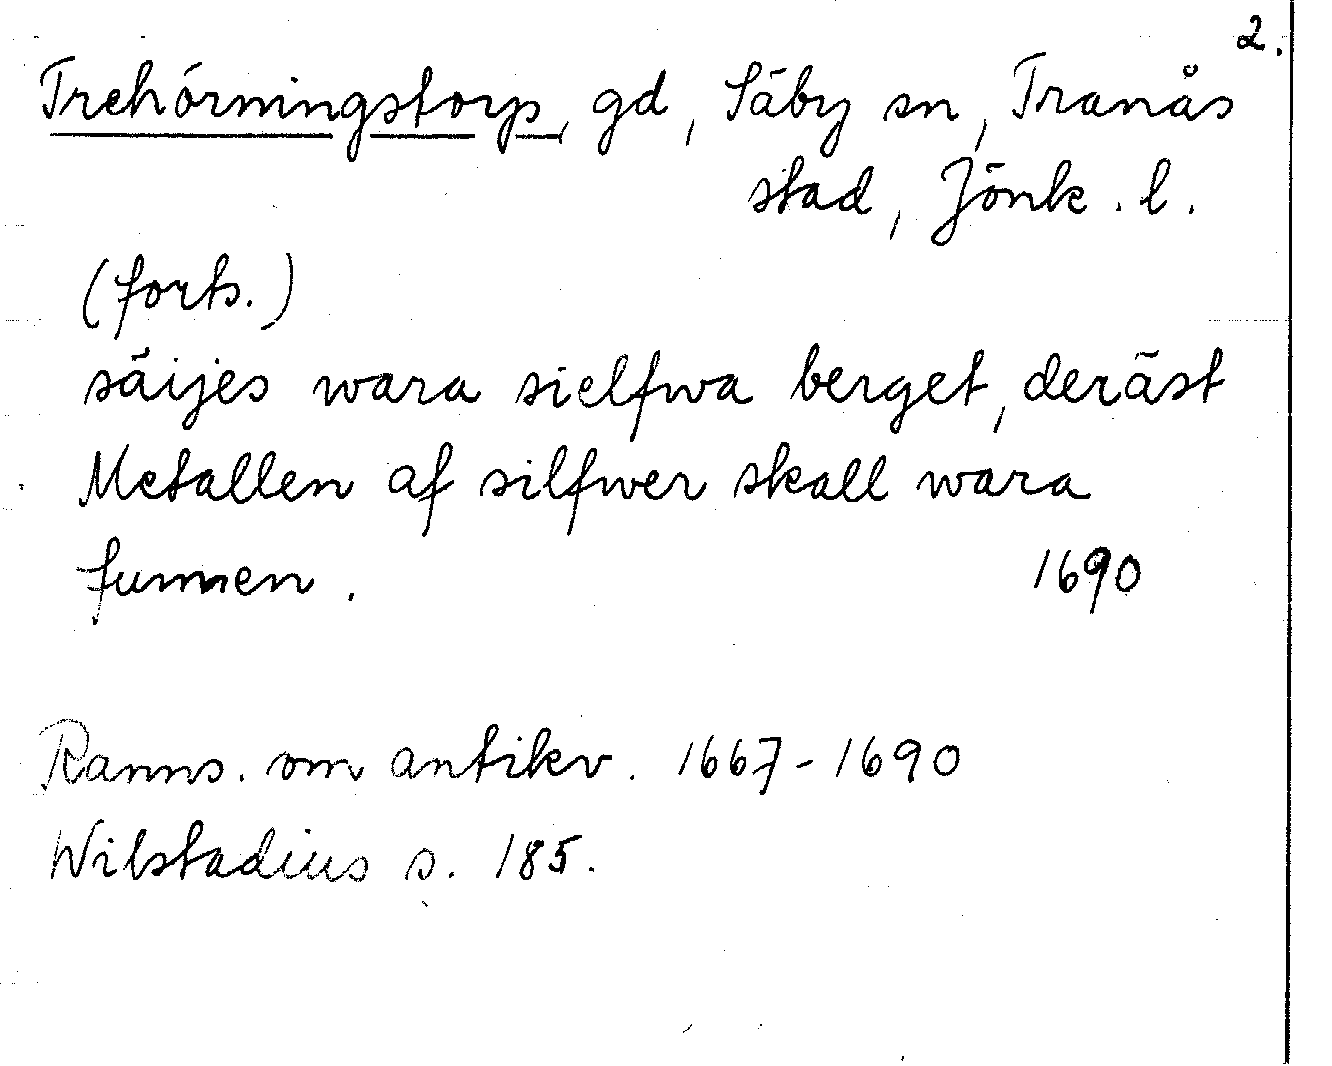 2.
Trehörningstorp, gd, Säby sn, Tranås
stad, Jönk. l.
(forts.)
säijes wara sielfwa berget, deräst
Metallen af silfwer skall wara
funnen. 1690
Ranns. om antikv. 1667-1690
Wilstadius s. 185.